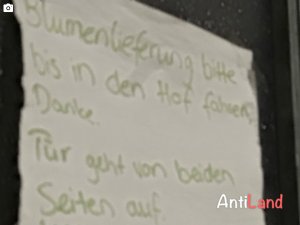 Blumenlieferung bitte
bis in den Hof fahren!
Danke.
Tür geht von beiden
Seiten auf.
AntiLand